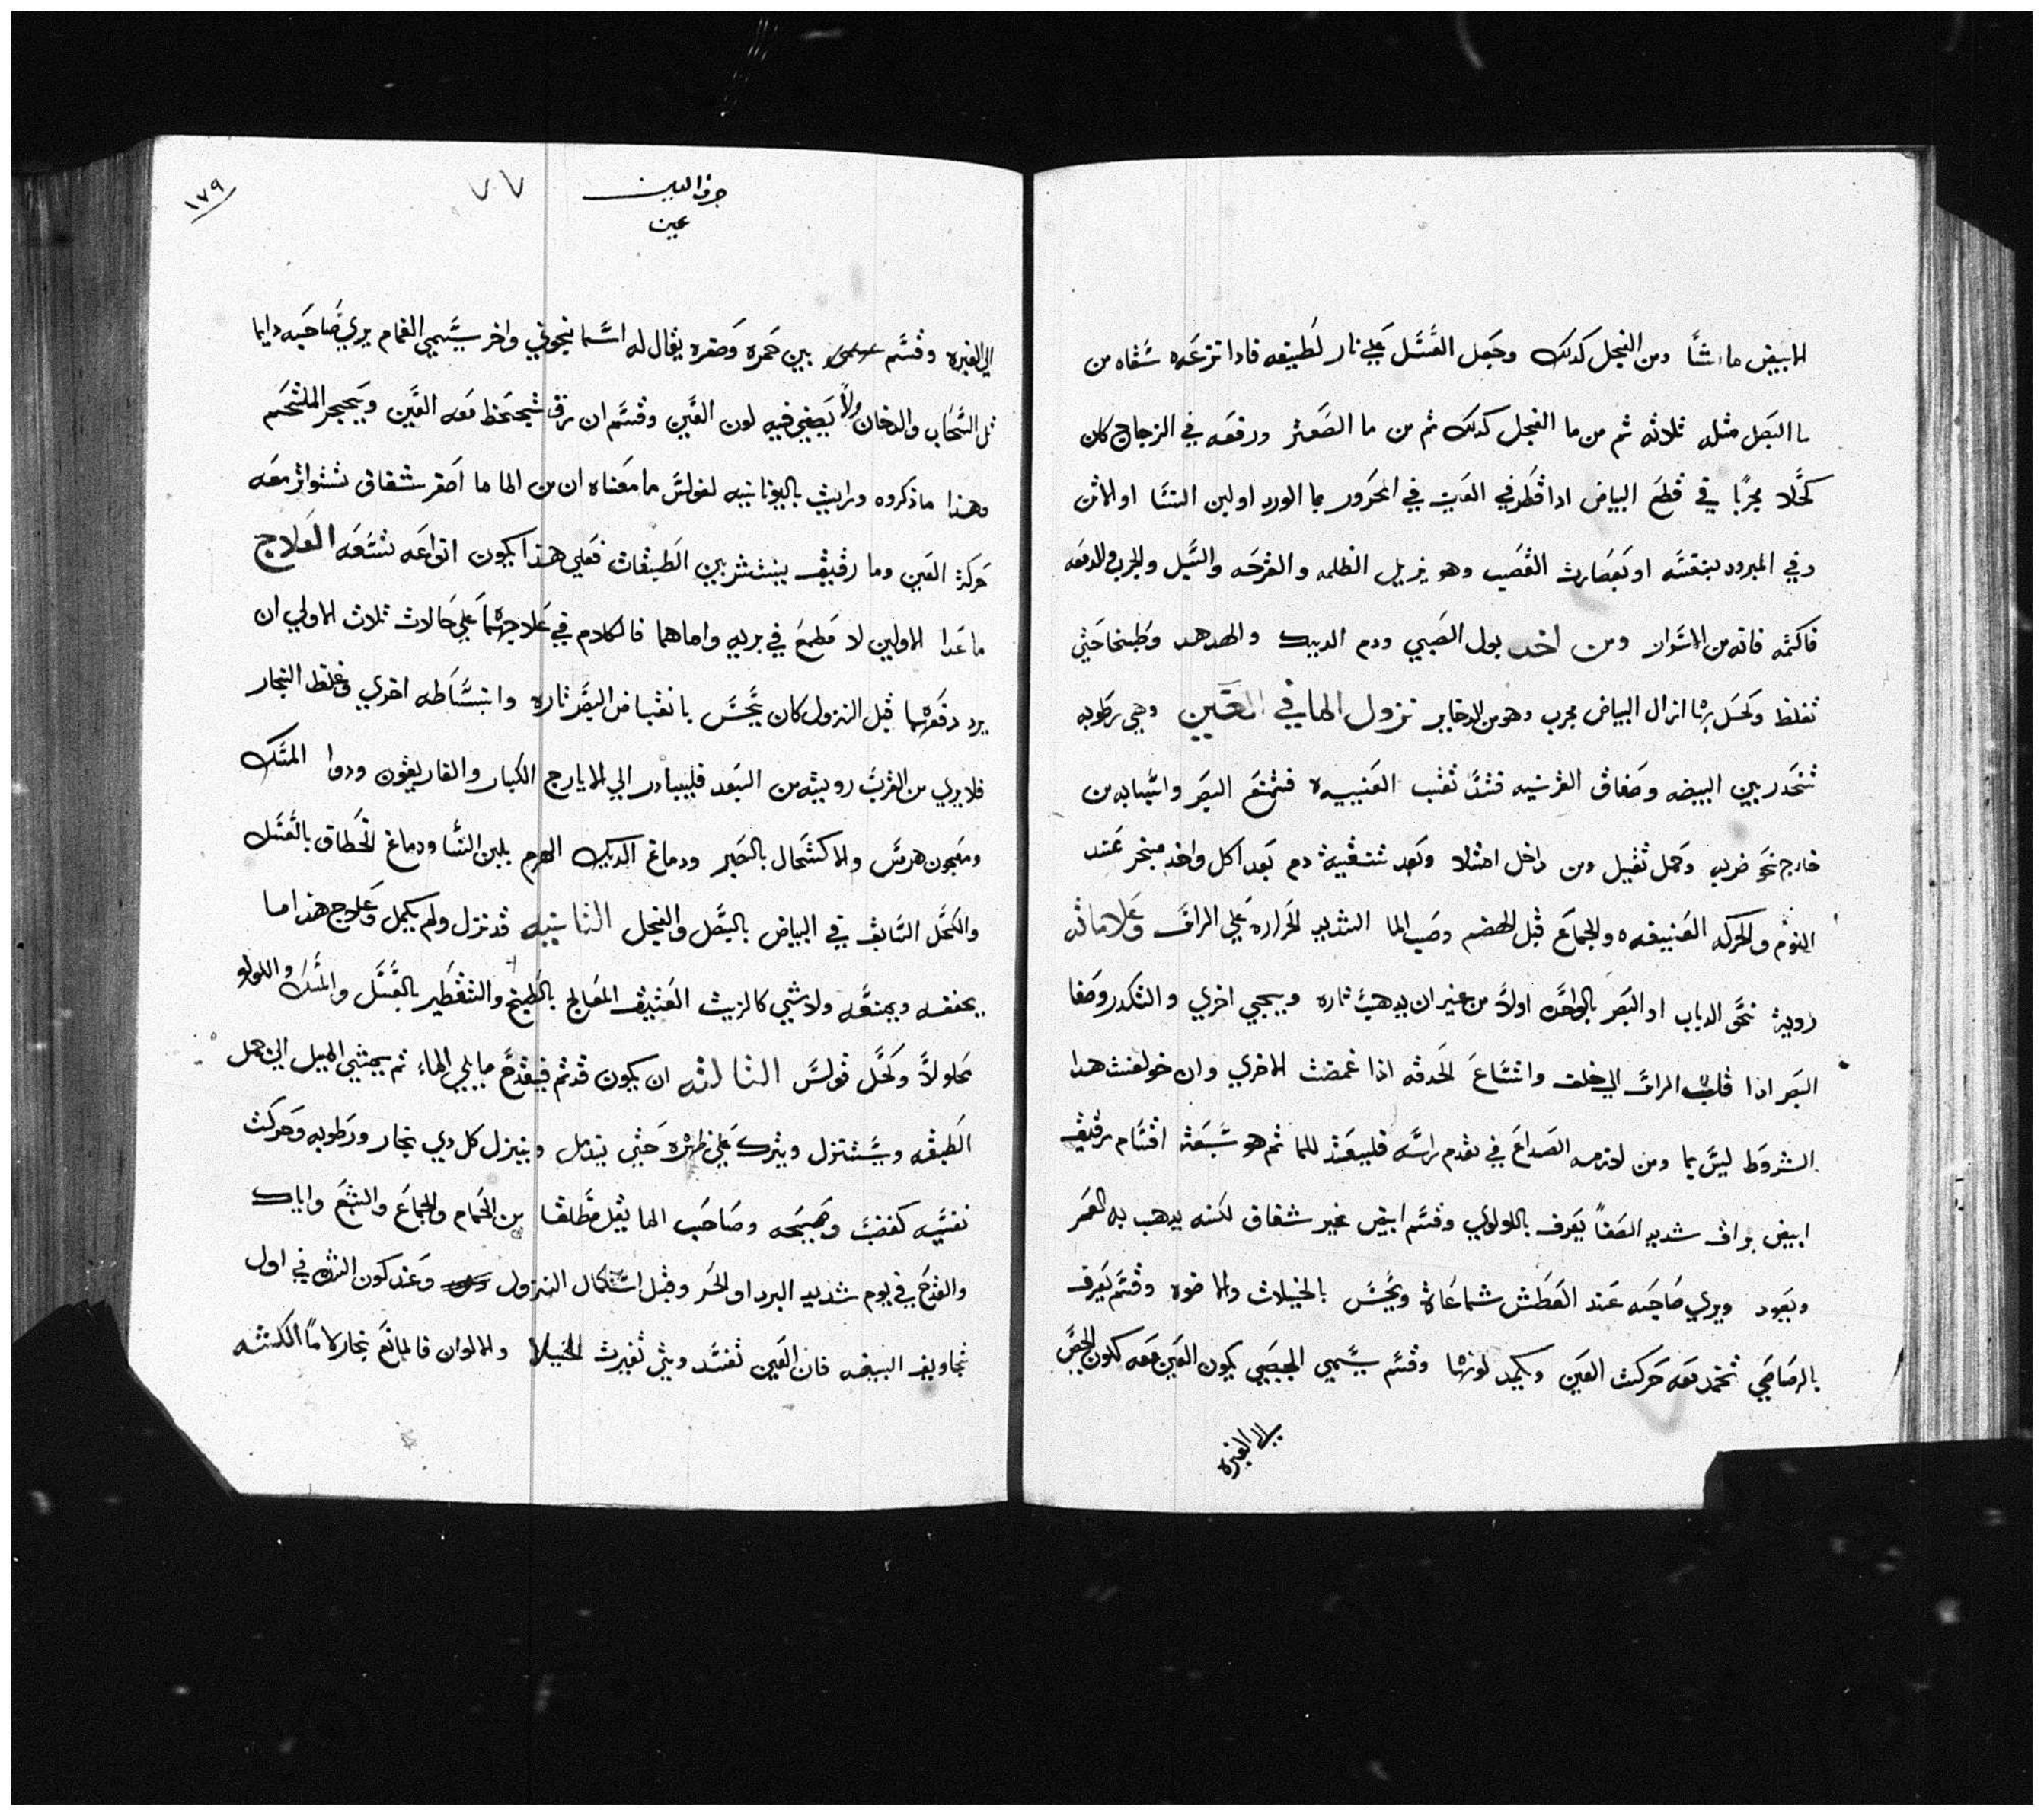 الابيض ما شا ومن الفجل كدلك وجعل العسل علي نار لطيفه فادا نزعه سقاه من
ما البصل مثله ثلاثه ثم من ما الفجل كدلك ثم من ما الصعتر ورفعه في الزجاج كان
كحلا مجربا في قطع البياض ادا قطر في العين في المحرور بما الورد او لبن النسا او الاتن
وفي المبرود بنفسه او بعصارت القصب وهو يزيل الظلمه والقرحه والسبل والجرب والدمعه
فاكتمه فانه من الاسرار ومن اخد بول الصبي ودم الديك والهدهد وطبخها حتي
تغلظ وكحل بها ازال البياض مجرب وهو من الدخاير نزول الما في العين وهي رطوبه
تنحدر بين البيضه وصفاق القرنيه فتسد ثقب العنبيه فتمنع البصر واسبابه من
خارج نحو ضربه وحمل ثقيل ومن داخل امتلا وبعد تنقية دم بعد اكل واخد مبخر عند
النوم والحركه العنيفه والجماع قبل الهضم وصب الما الشديد الحراره علي الراس وعلاماته
روية نحو الدباب او البصر بالواحده اولا من غير ان يدهب تاره ويجي اخري والتكدر وصفا
البصر ادا قلب الراس الي خلف واتساع الحدقه اذا غمضت الاخري وان خولفت هدا
الشروط ليس بما ومن لازمه الصداع في مقدم راسه فليستعد للما ثم هو سبعة اقسام رقيق
ابيض براق شديد الصفا يعرف باللولوي وقسم ابيض غير شفاف لكنه يدهب به البصر
ويعود ويري صاحبه عند العطش شعاعات ويحس بالخيلات والاضوه وقسم يعرف
بالرصاصي تخمد معه حركت العين ويكمد لونها وقسم يسمي الجصي يكون العين معه كلون الجص
الي الغبره
حرف العين
عين
١٧٩
الي الغبره وقسم بين حمره وصفره يقال له اسمانجوني واخر يسمي الغمام يري صاحبه دايما
مثل السحاب والدخان ولا يصفي فيه لون العين وقسم ازرق تجحظ معه العين ويتحجر الملتحم
وهذا ما ذكروه ورايت باليونانيه لفولس ما معناه ان من الما ما اصفر شفاف تتواتر معه
حركة العين وما رقيق ينتشر بين الطبقات فعلي هذا يكون انواعه تسعه العلاج
ما عدا الاولين لا مطمع في بريه واما هما فالكلام في علاجهما علي حالات ثلاث الاولي ان
يرد دفعهما قبل النزول كان يحس بانقباض البصر تاره وانبساطه اخري وغلظ البخار
فلا يري من القرب رويته من البعد فليبادر الي الايارج الكبار والغاريقون ودوا المسك
ومعجون هرمس والاكتحال بالصبر ودماغ الديك الهرم بلبن النسا ودماغ الخطاف بالعسل
والكحل السابق في البياض بالبصل والفجل الثانيه قد نزل ولم يكمل وعلاج هذا ما
يحففه ويمنعه ولا شي كالزيت العتيق المعالج بالطبخ والتقطير بالعسل والمسك واللولو
محلولا وكحل فولس الثالثه ان يكون قد تم فيقدح ما يلي الماء ثم يمشي الميل الي حمل
الطبقه ويستنزل ويترك علي ظهره حتي يندمل وينزل كل دي بخار ورطوبه وحركت
نفسيه كغضب وصيحه وصاحب الما يقل مطلقا من الحمام والجماع والشبع واياك
والقدح في يوم شديد البرد او الحر وقبل استكمال النزول وعند كون النزله في اول
تجاويف البيضه فان العين تفسد ومتي تغيرت الخيلا والالوان فالمانع بخار لا ما الكمنه